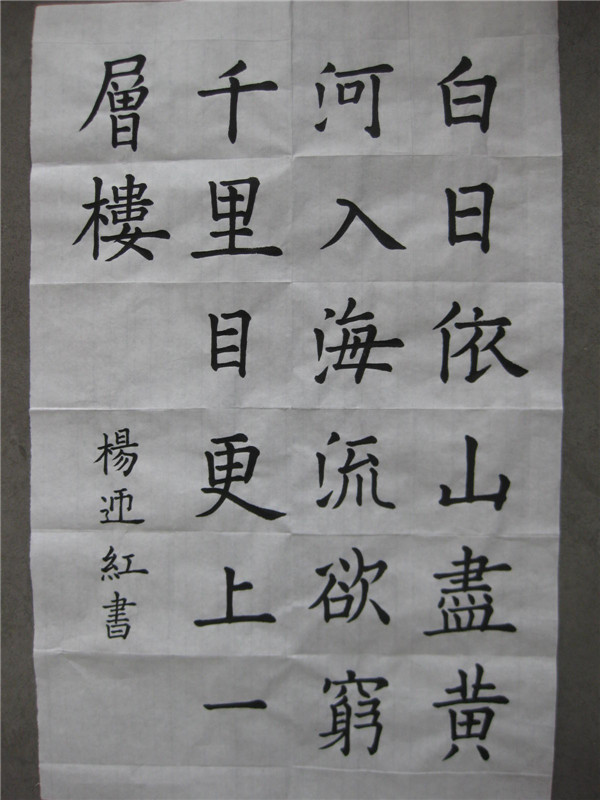 白日依山盡黄
河入海流欲窮
千里目更上一
層樓
楊迊紅書